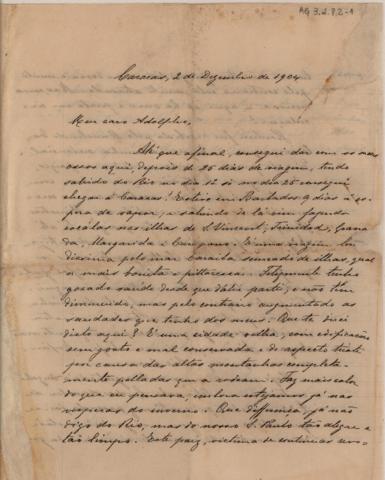 AG 3.2.8.2-1
Caracas, 2 de Dezembro de 1904
Meu caro Adolpho,
Até que afinal, consegui dar com os meus
ossos aqui, depois de 26 dias de viagem, tendo
sahido do Rio no dia 1º só no dia 26 consegui
chegar a Caracas! Estive em Barbados 9 dias á es-
pera de vapor, e sahindo de lá vim fazendo
escalas nas ilhas de S. Vincent, Trinidad, Grana
da, Margarida e Carupano. É uma viagem lin-
dissima pelo mar Caraiba semeado de ilhas, qual
a mais bonita e pittoresca. Felizmente tenho
gosado saude desde que dahi parti, e não têm
diminuido, mas pelo contrario augmentado as
saudades que tenho dos meus. Que te direi
disto aqui? É uma cidade velha, com edificações
sem gosto e mal conservada e de aspecto triste
por causa das altas montanhas completa-
mente pelladas que a rodeam. Faz mais calor
do que eu pensava, embora estejamos já nas
vesperas do inverno. Que differença, já não
digo do Rio, mas do nosso S. Paulo tão alegre e
tão limpo. Este paiz, victima de continuas revo-